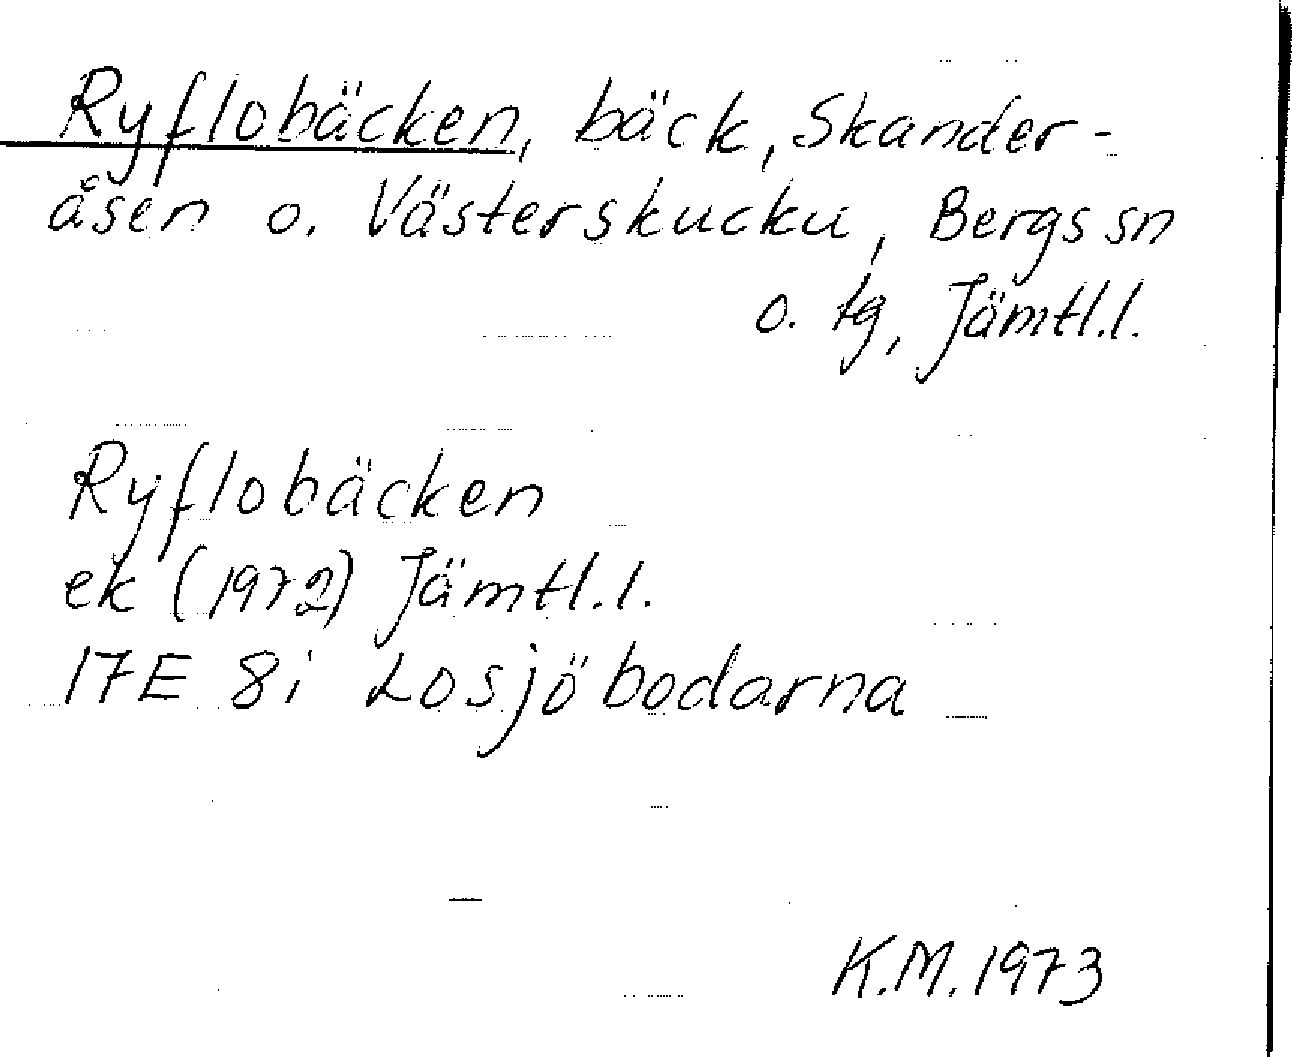 Ryflobäcken, bäck, Skander-
åsen o. Västerskucku, Bergs sn
o. tg, Jämtl.l.
Ryflobäcken
ek (1972) Jämtl.l.
17E 8i Losjöbodarna
K.M. 1973